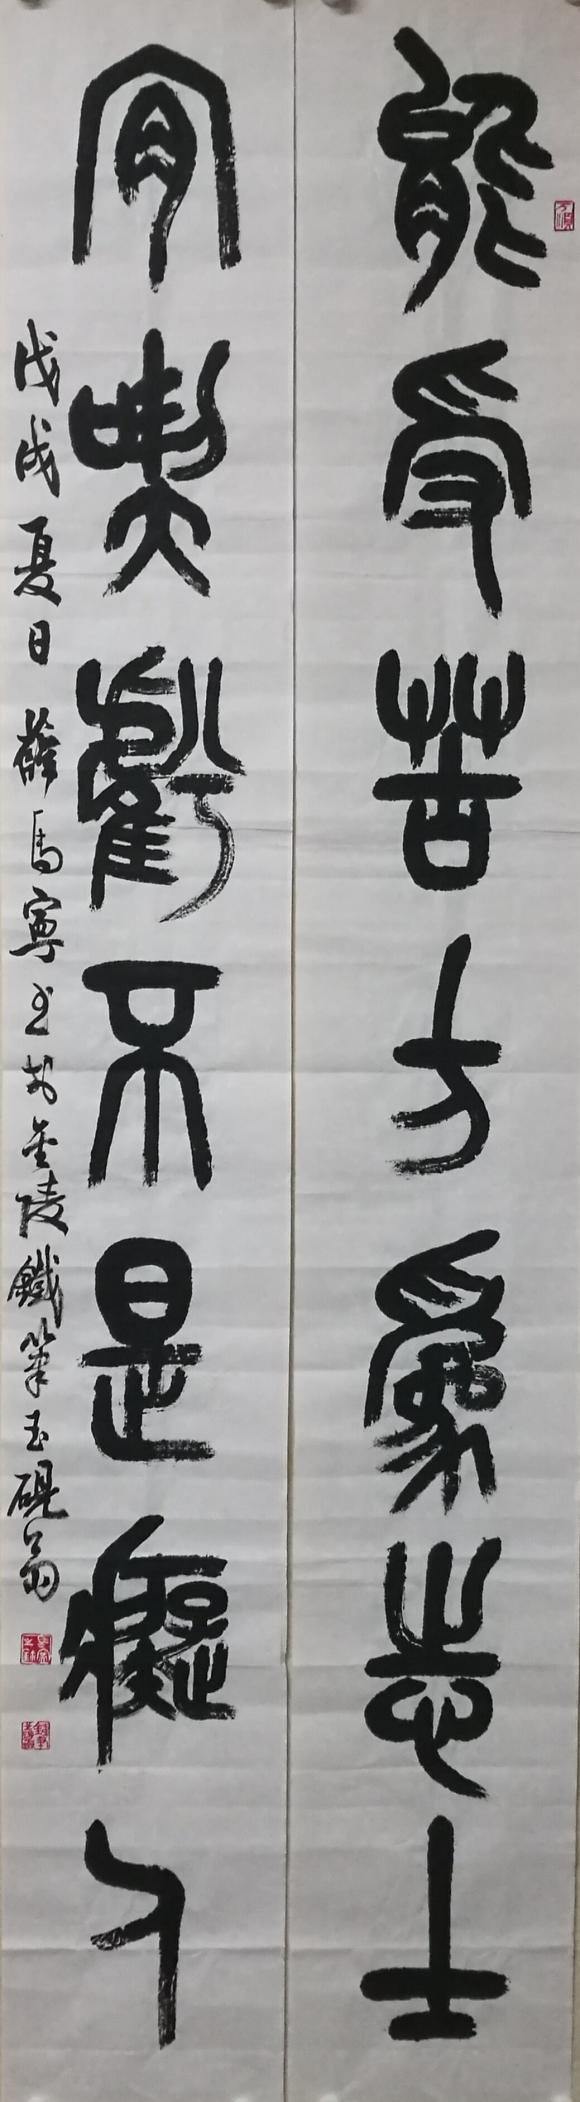 能受苦方為志士
肎喫虧不是癡人
戊戌夏日薛馬寧书於金陵鐵筆玉硯翁